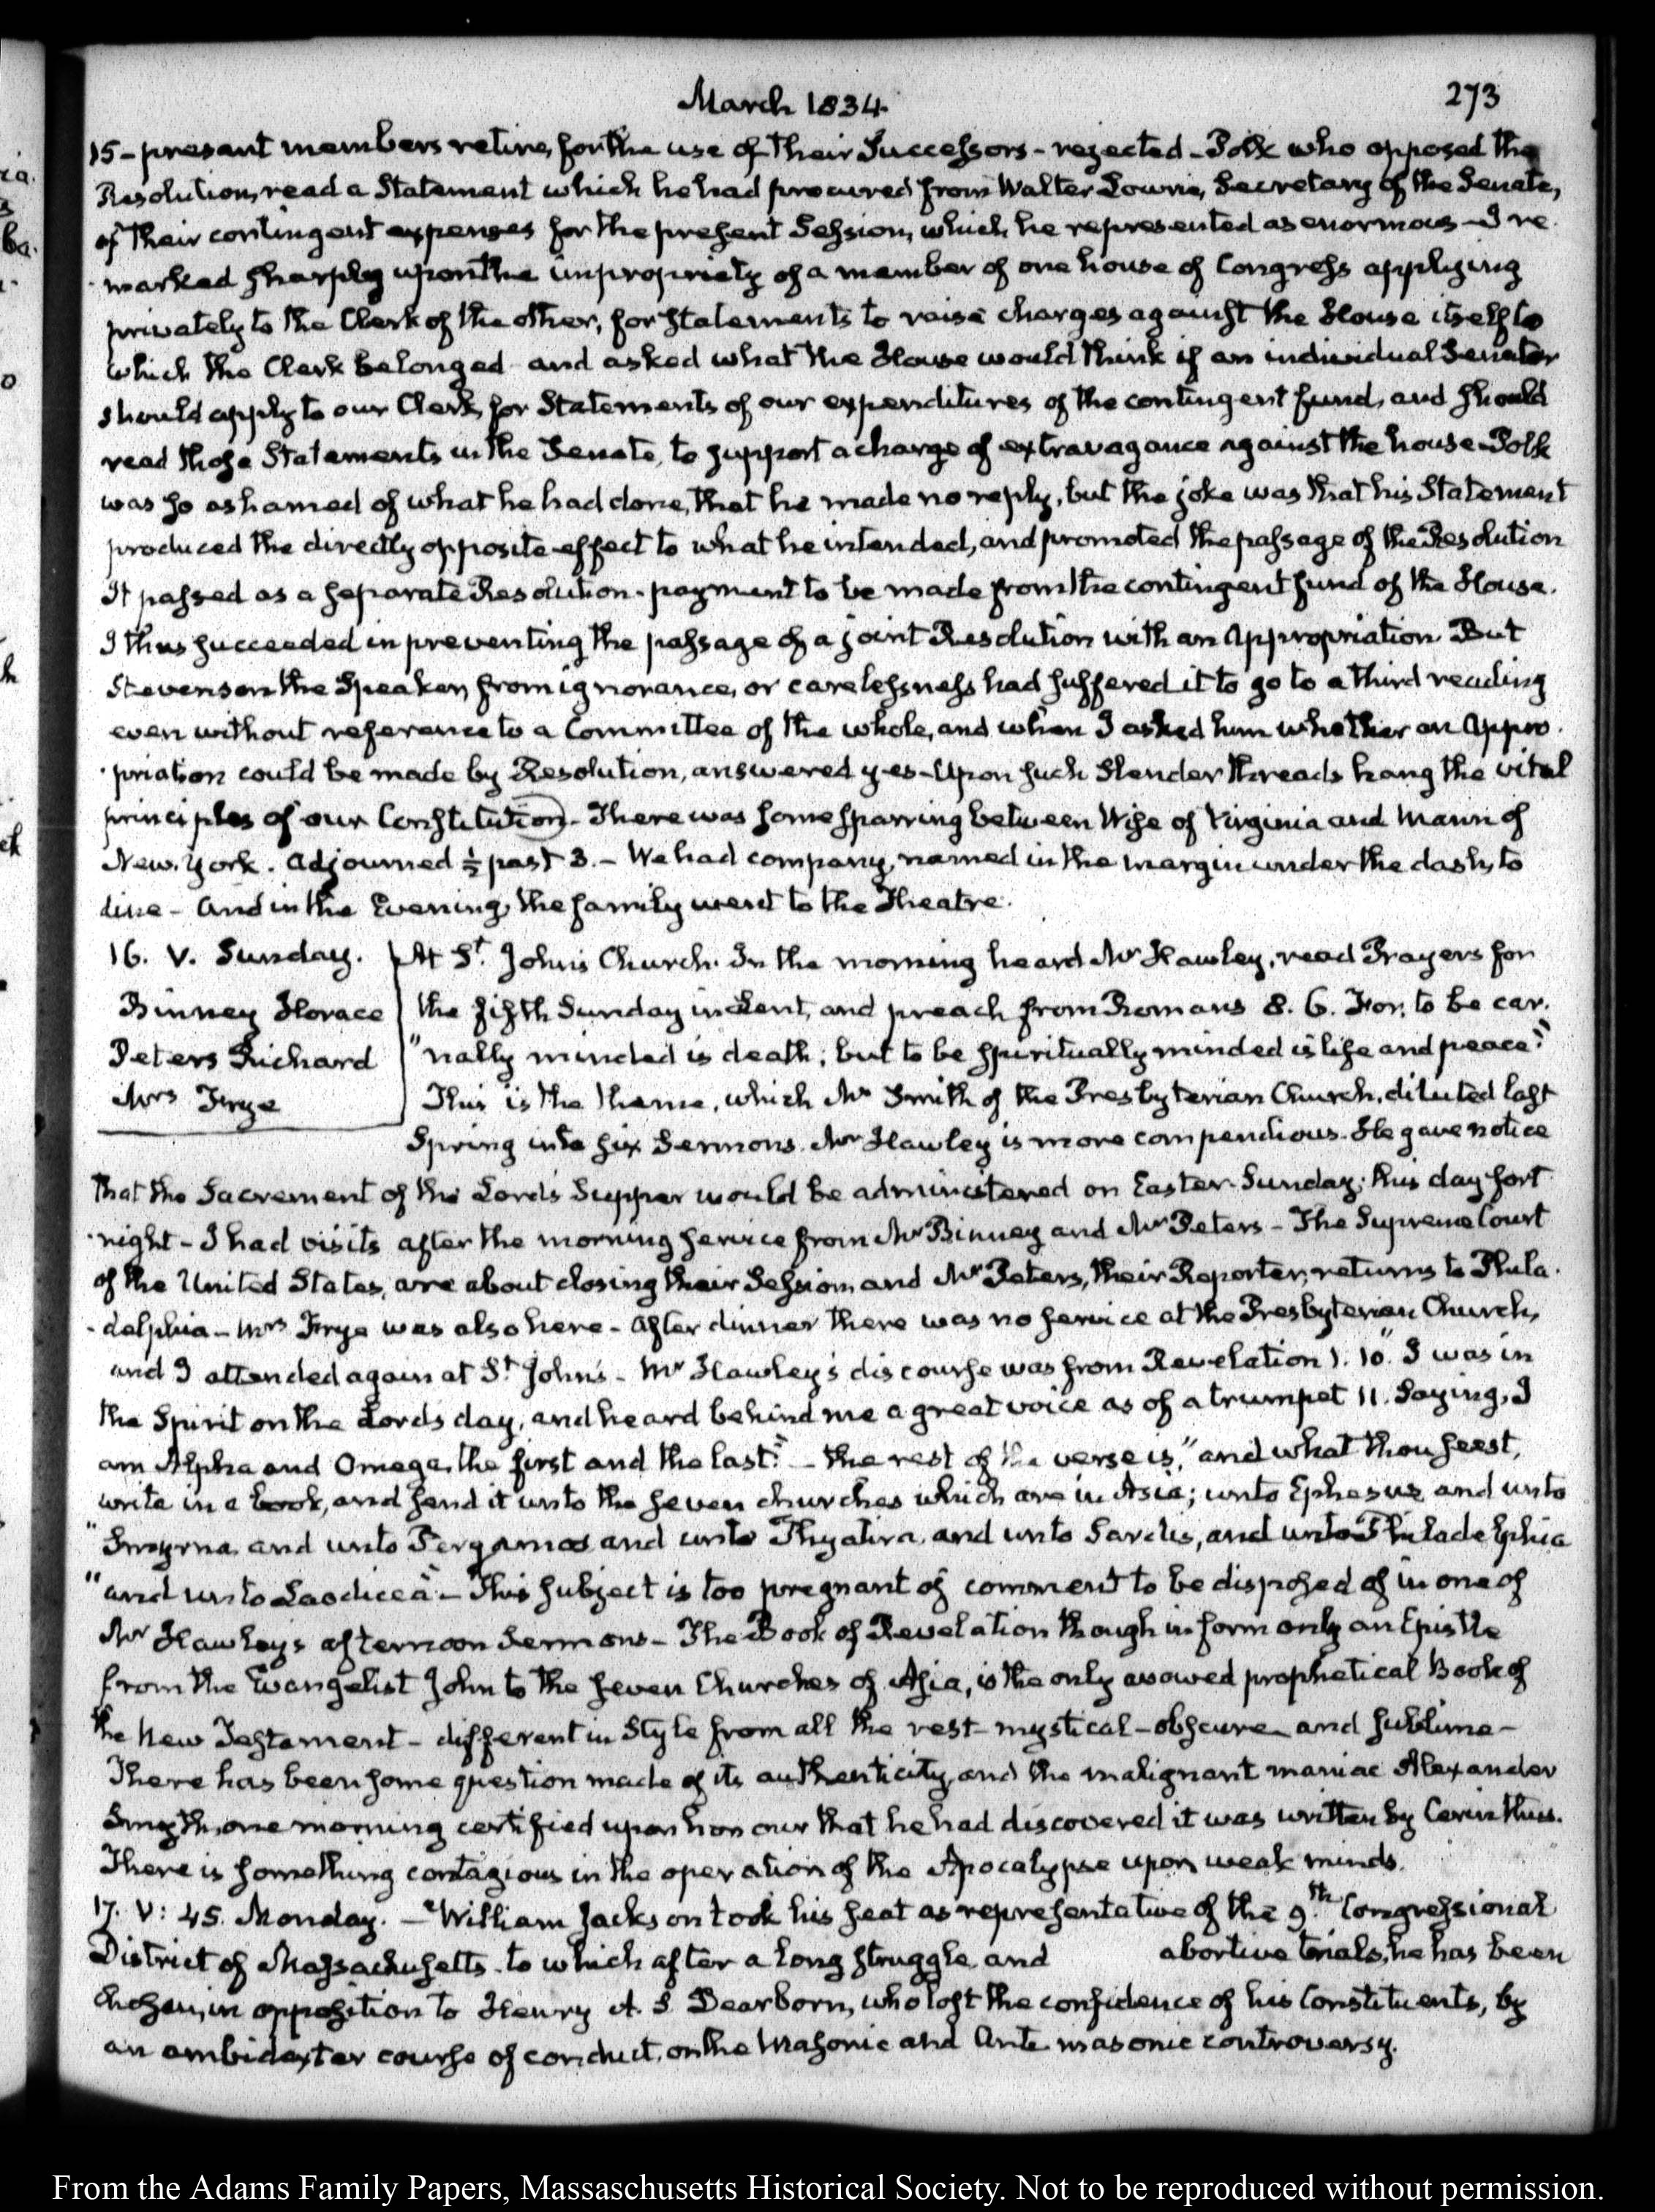 March 1834.
273
15 - present members retire, for the use of their Successors - rejected - Polk who opposed the
Resolution, read a Statement which he had procured from Walter Lowrie, Secretary of the Senate,
of their contingent expenses for the present Session, which he represented as enormous - I re
marked sharply upon the impropriety of a member of one house of Congress applying
privately to the Clerk of the other, for Statements to raise charges against the House itself to
which the Clerk belonged and asked what the House would think if an individual Senator
should apply to our Clerk, for Statements of our expenditures of the contingent fund, and should
read those Statements in the Senate, to support a charge of extravagance against the house - Polk
was so ashamed of what he had done, that he made no reply, but the joke was that his Statement
produced the directly opposite effect to what he intended, and promoted the passage of the Resolution
It passed as a separate Resolution - payment to be made from the contingent fund of the House.
I thus succeeded in preventing the passage of a joint Resolution with an Appropriation. But
Stevenson the Speaker, from ignorance, or carelessness had suffered it to go to a third reading
even without reference to a Committee of the whole, and when I asked him whether an Appro-
-priation could be made by Resolution, answered yes - Upon such Slender threads hang the vital
principles of our Constitution - There was some sparring between Wise of Virginia and Mann of
New-York. Adjourned ½ past 3. - We had company, named in the margin under the dash, to
dine - And in the Evening, the family went to the Theatre.
16. V. Sunday.
Binney Horace
Peters Richard
Mrs Frye
At St. John's Church. In the morning heard Mr Hawley, read Prayers for
the fifth Sunday in Lent, and preach from Romans 8. 6. For, to be car.
"nally minded is death; but to be spiritually minded is life and peace."
This is the theme, which Mr Smith of the Presbyterian Church, diluted last
Spring into six Sermons. Mr Hawley is more compendious. He gave notice
that the Sacrement of the Lord's Supper would be administered on Easter-Sunday; this day fort
-night - I had visits after the morning service from Mr Binney and Mr Peters - The Supreme Court
of the United States, are about closing their Session, and Mr Peters, their Reporter, returns to Phila-
-delphia - Mrs Frye was also here - After dinner there was no service at the Presbyterian Church,
and I attended again at St John's - Mr Hawley's discourse was from Revelation 1. 10. "I was in
the Spirit on the Lords day, and heard behind me a great voice as of a trumpet 11. Saying, I
am Alpha and Omega, the first and the last:" - the rest of the verse is, "and what thou seest,
write in a book, and send it unto the seven churches which are in Asia; unto Ephesus and unto
"Smyrna and unto Pergamos and unto Thyatira, and unto Sardis, and unto Philadelphia
"and unto Laodicea" - This subject is too pregnant of comment to be disposed of in one of
Mr Hawley's afternoon Sermons - The Book of Revelation though in form only an Epistle
from the Evangelist John to the seven Churches of Asia, is the only avowed prophetical Book of
the New Testament - different in Style from all the rest - mystical - obscure and sublime -
There has been some question made of its authenticity, and the malignant maniac Alexander
Smyth, one morning certified upon honour that he had discovered it was written by Cerinthus.
There is something contagious in the operation of the Apocalypse upon weak minds.
17. V: 45. Monday. - William Jackson took his seat as representative of the 9th. Congressional
District of Massachusetts. to which after a long struggle, and abortive trials, he has been
chosen, in opposition to Henry A. S. Dearborn, who lost the confidence of his Constituents, by
an ambidexter course of conduct, on the Masonic and Anti-masonic controversy.
From the Adams Family Papers, Massachusetts Historical Society. Not to be reproduced without permission.